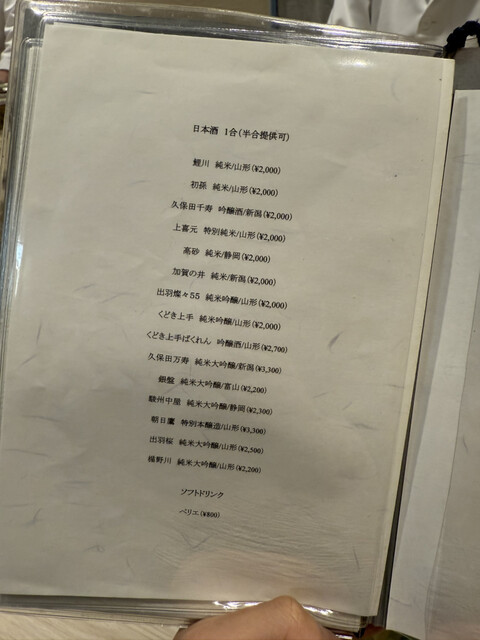 日本酒 1合(半合提供可)
鯉川 純米/山形(¥2,000)
初孫 純米/山形(¥2,000)
久保田千寿 吟醸酒/新潟(¥2,000)
上喜元 特別純米/山形(¥2,000)
高砂 純米/静岡(¥2,000)
加賀の井 純米/新潟(¥2,000)
出羽燦々55 純米吟醸/山形(¥2,000)
くどき上手 純米吟醸/山形(¥2,000)
くどき上手ばくれん 吟醸酒/山形(¥2,700)
久保田万寿 純米大吟醸/新潟(¥3,300)
銀盤 純米大吟醸/富山(¥2,200)
駿州中屋 純米大吟醸/静岡(¥2,300)
朝日鷹 特別本醸造/山形(¥3,300)
出羽桜 純米大吟醸/山形(¥2,500)
楯野川 純米大吟醸/山形(¥2,200)
ソフトドリンク
ペリエ(¥800)